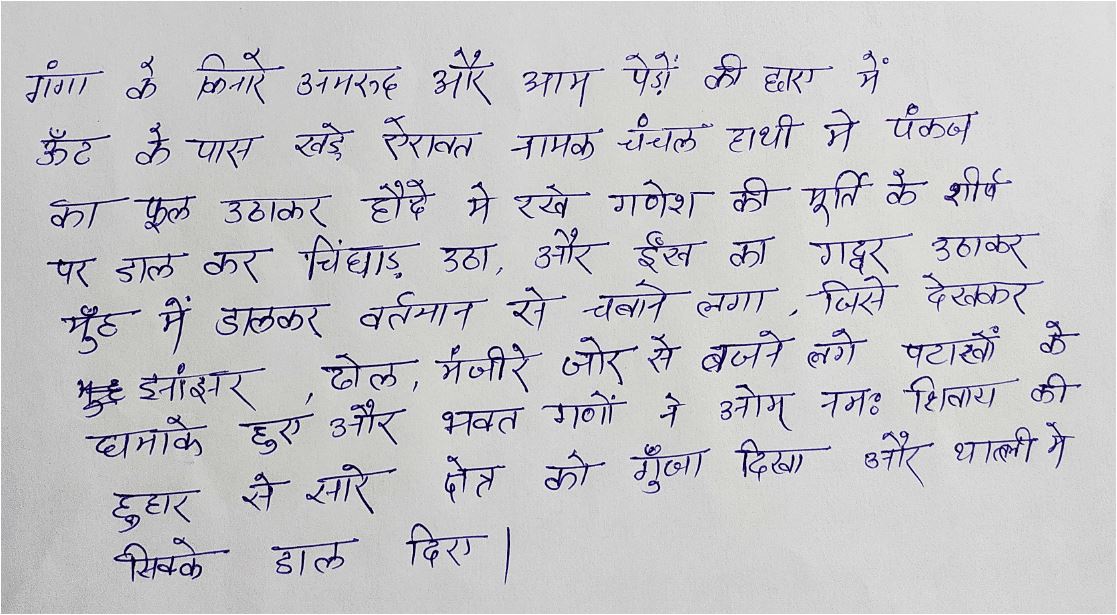 गंगा के किनारे अमरुद और आम पेड़ों की छाए में
ऊँट के पास खड़े ऐरावत नामक चंचल हाथी मे पंकज
का फूल उठाकर हौदे मे रखे गणेश की मूर्ति के शीर्ष
पर डाल कर चिंघाड़ उठा, और ईख का गट्ठर उठाकर
मुँह में डालकर वर्तमान से चबाने लगा, जिसे देखकर
झांझर, ढोल, मंजीरे जोर से बजने लगे पटाखों के
धमाके हुए और भक्त गणों ने ओम् नमः शिवाय की
हुहार से सारे क्षेत्र को गुँजा दिखा और थाली मे
सिक्के डाल दिए।